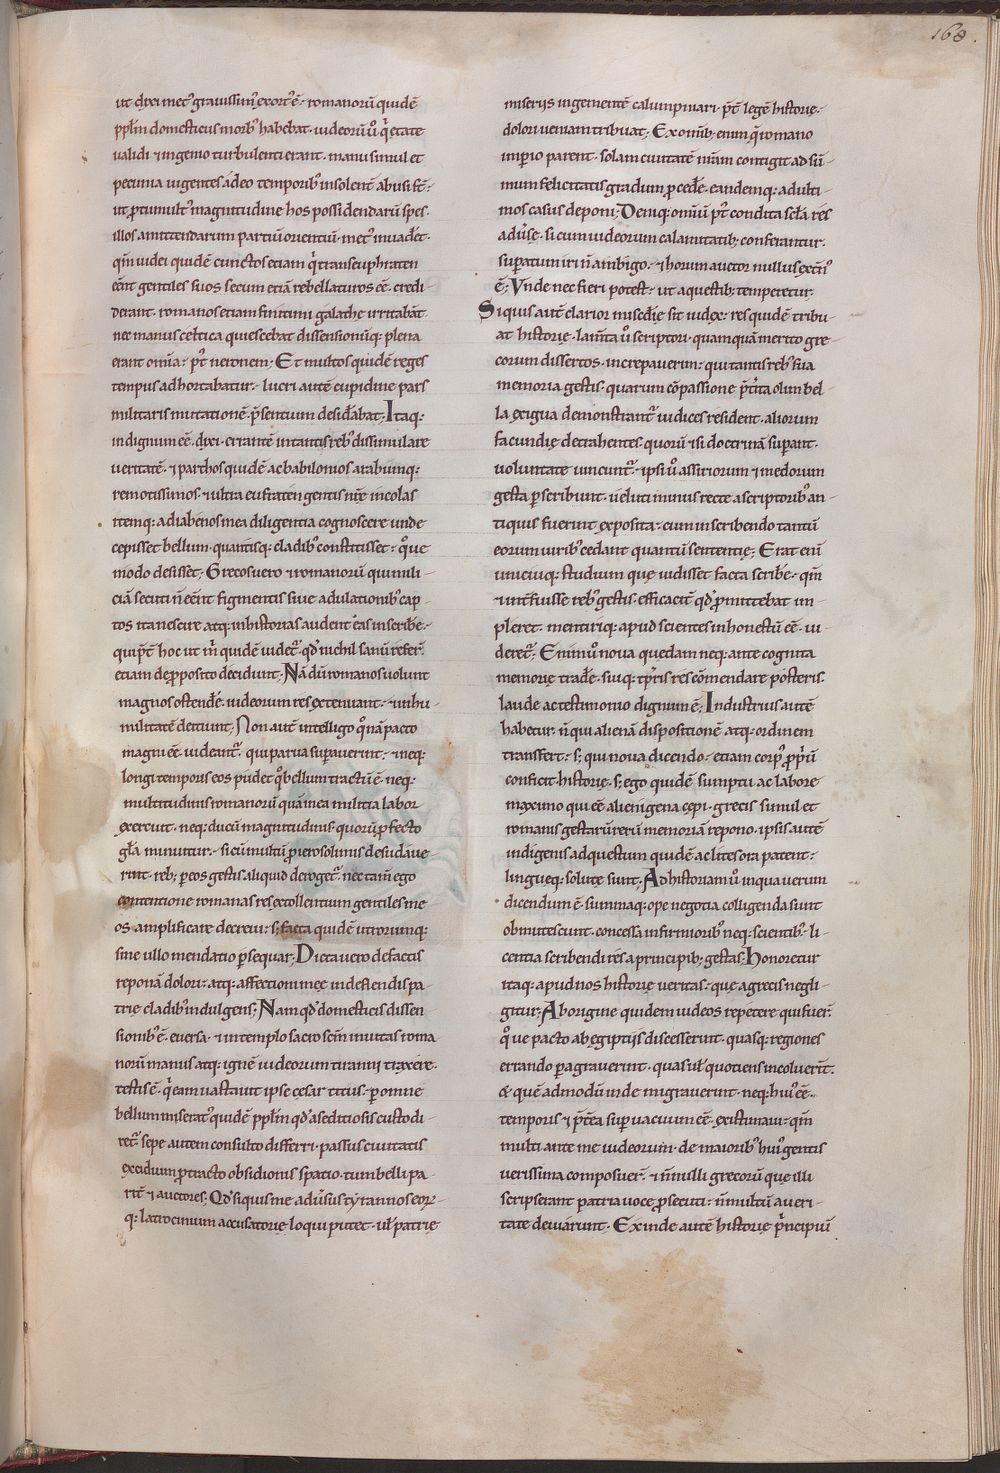 168.
ut dixi met᷒ grauissim᷒ exort᷒ ē· romanorū quidē
pplm̄ domesticus morb᷒ habebat· iudeorū u̓o q̄ etate
ualidi ⁊ ingenio turbulenti erant· manu simul et
pecunia uigentes adeo temporib᷒ insolent̄ abusi st̄·
ut p tumult᷒ magnitudine hos possidendarū spes·
illos amittendarum partiū orientiū· met᷒ inuad̄et·
qm̄ iudei quidē cunctos etiam q̄ trans euphraten
eēnt gentiles suos secum etiā rebellaturos eē· credi-
derant· romanos etiam finitimi galathe irritabāt
nec manus celtica quiescebat dissensionūq; plena
erant omīa· p̄t neronem; Et multos quidē reges
tempus adhortabatur· lucri autē cupidine pars
militaris mutationē p̄sentium desid̄abat; Itaq;
indignum eē dixi· errantē in tantis reb᷒ dissimulare
ueritatē· ⁊ parthos quidē ac babilonios arabumq;
remotissimos· ⁊ ultra eufraten gentis nr̄ę incolas
itemq; adiabenos mea diligentia cognoscere unde
cepisset bellum· quantisq; cladib᷒ constitisset· q̊ue
modo desisset; Grecos uero ⁊ romanorū qui mili-
ciā secuti n̄ eēnt figmentis siue adulationib᷒ cap-
tos ita nescire atq; in historias audent eas inscribe̅·
qui p̄t hoc ut m̄ quidē uidet̄· qd̓ nichil sanū refer̄t
etiam de pposito decidunt; Nā dū romanos uolunt
magnos ostend̄e· iudeorum res extenuant· ⁊ in hu-
militatē deiciunt; Non autē intelligo q̊nā pacto
magni eē uideant̄· qui parua supauerint· ⁊ neq;
longi temporis eos pudet q̊ bellum tractū ē· neq;
multitudinis romanorū quā in ea militia labor
exercuit· neq; ducū magnitudinis· quorū pfecto
gl̄a minuitur· si cū multū p ierosolimis desudaue
rint· reb; p eos gestis aliquid deroget̄· nec tam̄ ego
contentione romanas res extollentium gentiles me
os amplificare decreui· s; facta quidē utrorumq;
sine ullo mendatio psequar; Dicta uero de factis
reponā dolori· atq; affectioni meę indeflendis pa-
trię cladib᷒ indulgens; Nam qd̓ domesticis dissen
sionib᷒ ē· euersa· ⁊ in templo sacro scm̄ inuitas roma
norū manus atq; ignē iudeorum tiranni traxere·
testis ē· q̄ eam uastauit ipse cesar titus· p omne
bellum miserat᷒ quidē pplm̄ qd̓ a seditiosis custodi-
ret̄· sepe autem consulto differri· passus ciuitatis
excidium ptracto obsidionis spatio· tum belli pa-
rit̄ ⁊ auctores; Qd̓ siquis me adu̓sus tyrannos eoꝝ-
q; latrocinium accusatorię loqui putet· ut patrię
miseriis ingementē calumpniari· p̄t legē historię·
dolori ueniam tribuat; Ex omīb; enim q̄ romano
imperio parent· solam ciuitatē nr̄am contigit ad sū-
mum felicitatis gradum pced̄e· eandemq; ad ulti-
mos casus deponi; Deniq; omīū p̄t condita scl̄a res
adu̓se· si cum iudeorum calamitatib; conferantur·
supatum iri n̄ ambigo· ⁊ horum auctor nullus exter᷒
ē; Unde nec fieri potest· ut a questib; temperetur·
Siquis autē clarior misc̄die sit iudex· res quidē tribu-
at historię· lam̄ta u̓o scriptori· quamquā merito gre-
corum dissertos· increpauerim· qui tantis reb᷒ sua
memoria gestis· quarum cōpassione p̄t̄ita olim bel-
la exigua demonstrant̄ iudices resident· aliorum
facundię detrahentes· quorū ⁊ si doctrinā supant·
uoluntate uincunt̄· ipsi u̓o assiriorum ⁊ medorum
gesta pscribunt· uēluti minus recte a scriptorib᷒ an-
tiquis fuerint exposita· cum in scribendo tantū
eorum uirib᷒ cedant quantū sententię; Erat eni
unicuiq; studium quę uidisset facta scrib̄e· qm̄
⁊ int̄fuisse reb᷒ gestis· efficacit̄ qd̓ pmittebat im-
pleret· mentiriq; apud scientes inhonestū eē· ui-
deret̄; Enim u̓o noua quedam neq; ante cognita
memorię trad̄e· suiq; tp̄ris res cōmendare posteris·
laude ac testimonio dignum ē; Industrius autē
habetur· n̄ qui alienā dispositionē atq; ordinem
transfert· s; qui noua dicendo· etiam corp᷒ ppriū
conficit historię· s; ego quidē sumptu ac labore
maximo qui eē alienigena cepi· grecis simul et
romanis gestarū rerū memoriā repono· ipsis autē
indigenis ad questum quidē ac lites ora patent·
linguęq; solutę sunt; Ad historiam u̓o inqua uerum
dicendum ē· summaq; ope negotia colligenda sunt
obmutescunt· concessa infirmiorib᷒ neq; scientib᷒· li-
centia scribendi res a principib; gestas; Honoretur
itaq; apud nos historię ueritas· quę a grecis negli-
gitur; Ab origine quidem iudeos repetere qui fuer̄
q̊ue pacto ab egiptiis discesserint· quasq; regiones
errando pagrauerint· quas ul̓ quotiens incoluerīt·
& quē admodū inde migrauerint· neq; hui᷒ eē·
temporis ⁊ p̄t̄ea supuacuum eē· existimaui· qm̄
multi ante me iudeorum· de maiorib᷒ hui᷒ gentis
uerissima composuer̄· ⁊ n̄nulli grecorū quę illi
scripserant patria uoce psecuti· n̄ multū a ueri-
tate deuiarunt· Exinde autē historię p̄ncipiū